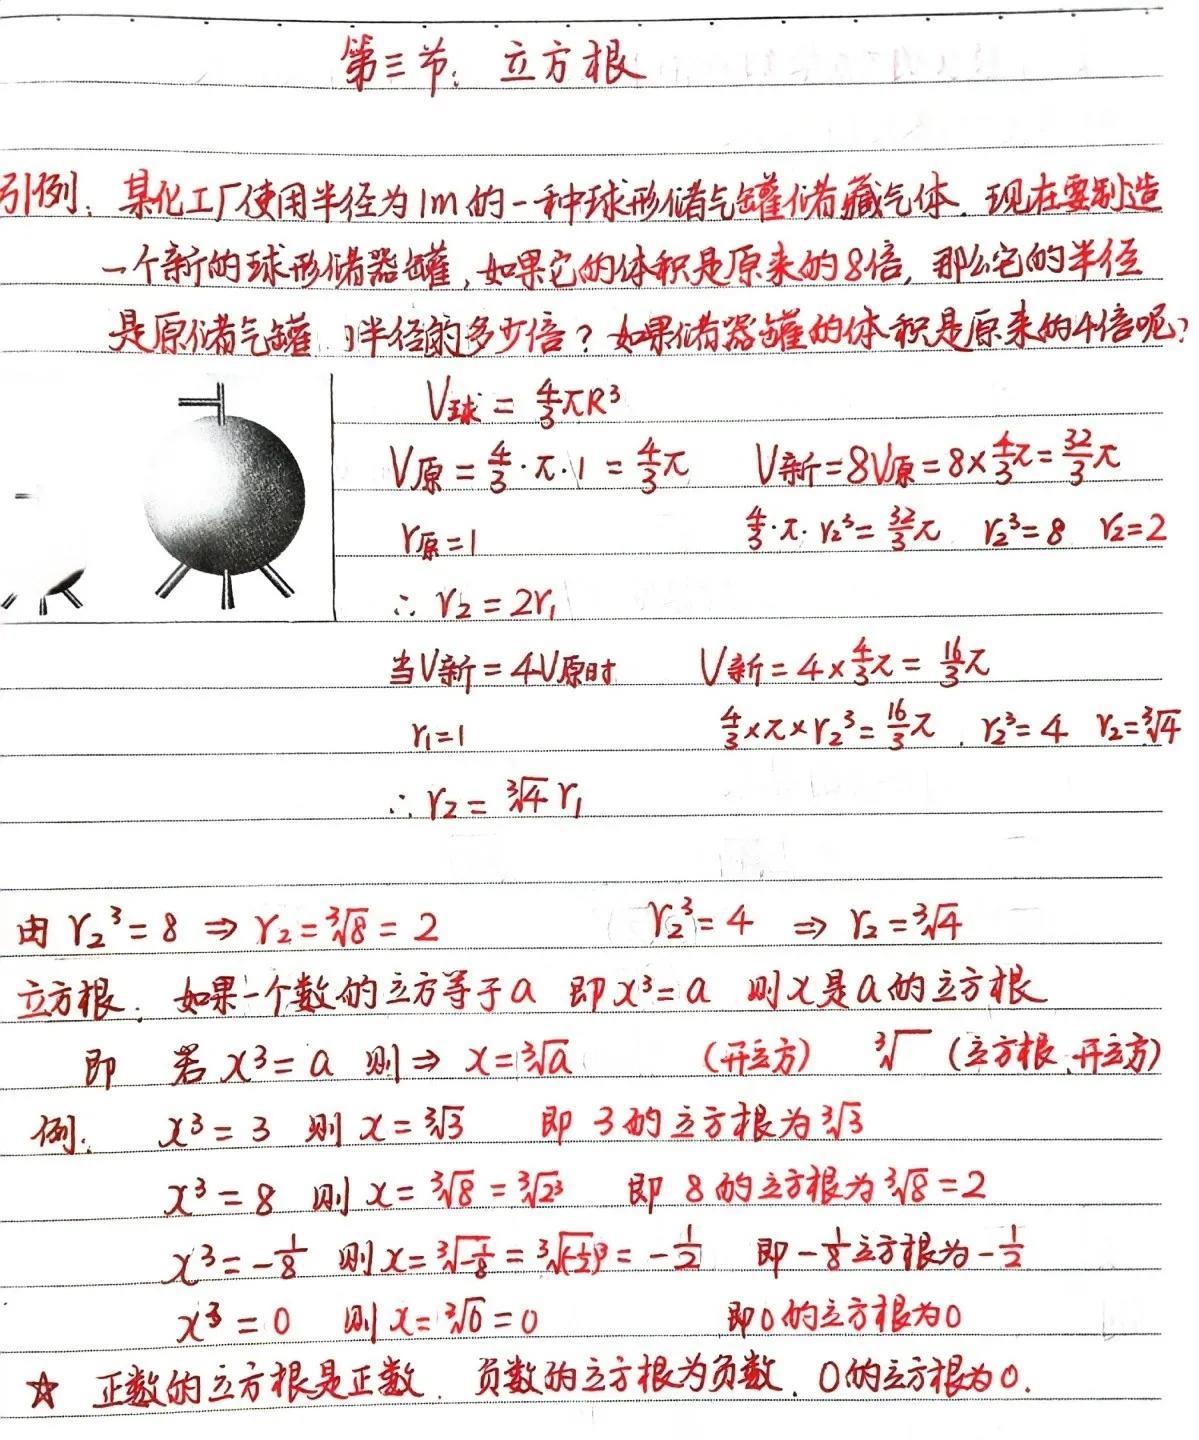 第三节：立方根
引例：某化工厂使用半径为1m的一种球形储气罐储藏气体．现在要制造
一个新的球形储器罐，如果它的体积是原来的8倍，那么它的半径
是原储气罐 半径的多少倍？如果储器罐的体积是原来的4倍呢？
V球 = 4/3πR³
V原 = 4/3·π·1 = 4/3π V新=8V原=8×4/3π=32/3π
r原=1 4/3·π·r₂³=32/3π r₂³=8 r₂=2
∴ r₂=2r₁
当V新=4V原时 V新=4×4/3π=16/3π
r₁=1 4/3×π×r₂³=16/3π．r₂³=4 r₂=³√4
∴ r₂=³√4 r₁
由 r₂³=8 ⇒ r₂=³√8=2 r₂³=4 ⇒ r₂=³√4
立方根．如果一个数的立方等于a 即x³=a 则x是a的立方根
即 若x³=a 则⇒ x=³√a （开立方） ³√ （立方根、开立方）
例： x³=3 则x=³√3 即3的立方根为³√3
x³=8 则x=³√8=³√2³ 即8的立方根为³√8=2
x³=-1/8 则x=³√-1/8=³√(-1/2)³=-1/2 即-1/8立方根为-1/2
x³=0 则x=³√0=0 即0的立方根为0
☆ 正数的立方根是正数．负数的立方根为负数．0的立方根为0．